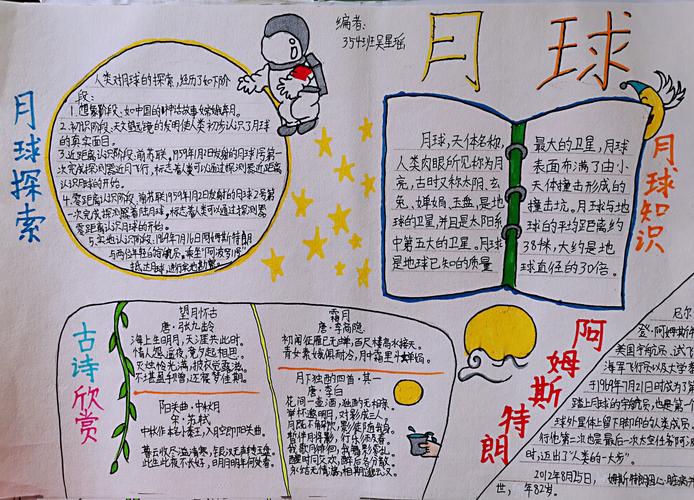 编者:
354班吴星瑶
月球
月球探索
人类对月球的探索,经历了如下阶
段:
1.想象阶段、如中国的神话故事《嫦娥奔月》。
2.初识阶段、天文望远镜的发明使人类初步认识了月球
的真实面目。
3.近距离认识阶段、前苏联,1959年1月2日发射的月球1号第
一次完成探测器近月飞行,标志着人类可以通过探测器近距离
认识月球的开始。
4.零距离认识阶段、前苏联1959年1月2日发射的月球2号第
一次完成探测器着陆月球,标志着人类可以通过探测器
零距离认识月球的开始。
5.实地认识阶段、1969年7月16日阿姆斯特朗
与两位年轻的宇航员,乘坐"阿波罗11号"
抵达月球,进行实地勘察。
月球知识
月球,天体名称,
人类肉眼所见称为月
亮,古时又称太阴、玄
兔、婵娟、玉盘,是地
球的卫星,并且是太阳系
中第五大的卫星。月球
是地球已知的质量
最大的卫星,月球
表面布满了由小
天体撞击形成的
撞击坑。月球与地
球的平均距离约
38万千米,大约是地
球直径的30倍。
古诗欣赏
望月怀古
唐·张九龄
海上生明月,天涯共此时。
情人怨遥夜,竟夕起相思。
灭烛怜光满,披衣觉露滋。
不堪盈手赠,还寝梦佳期。
阳关曲·中秋月
宋·苏轼
中秋作本名小秦王,入月空即阳关曲。
暮云收尽溢清寒,银汉无声转玉盘。
此生此夜不长好,明月明年何处看。
霜月
唐·李商隐
初闻征雁已无蝉,百尺楼高水接天。
青女素娥俱耐冷,月中霜里斗婵娟。
月下独酌四首·其一
唐·李白
花间一壶酒,独酌无相亲。
举杯邀明月,对影成三人。
月既不解饮,影徒随我身。
暂伴月将影,行乐须及春。
我歌月徘徊,我舞影零乱。
醒时同交欢,醉后各分散。
永结无情游,相期邈云汉。
阿姆斯特朗
尼尔
登·阿姆斯特
美国宇航员、试飞
海军飞行员以及大学教
于1969年7月21日时成为了第
踏上月球的宇航员,也是第一个
球外星体上留下脚印的人类成员,
行他第一次也是最后一次太空任务阿波
时,迈出了"人类的一大步"
2012年8月25日,姆斯特朗因心脏病
世,年82岁。